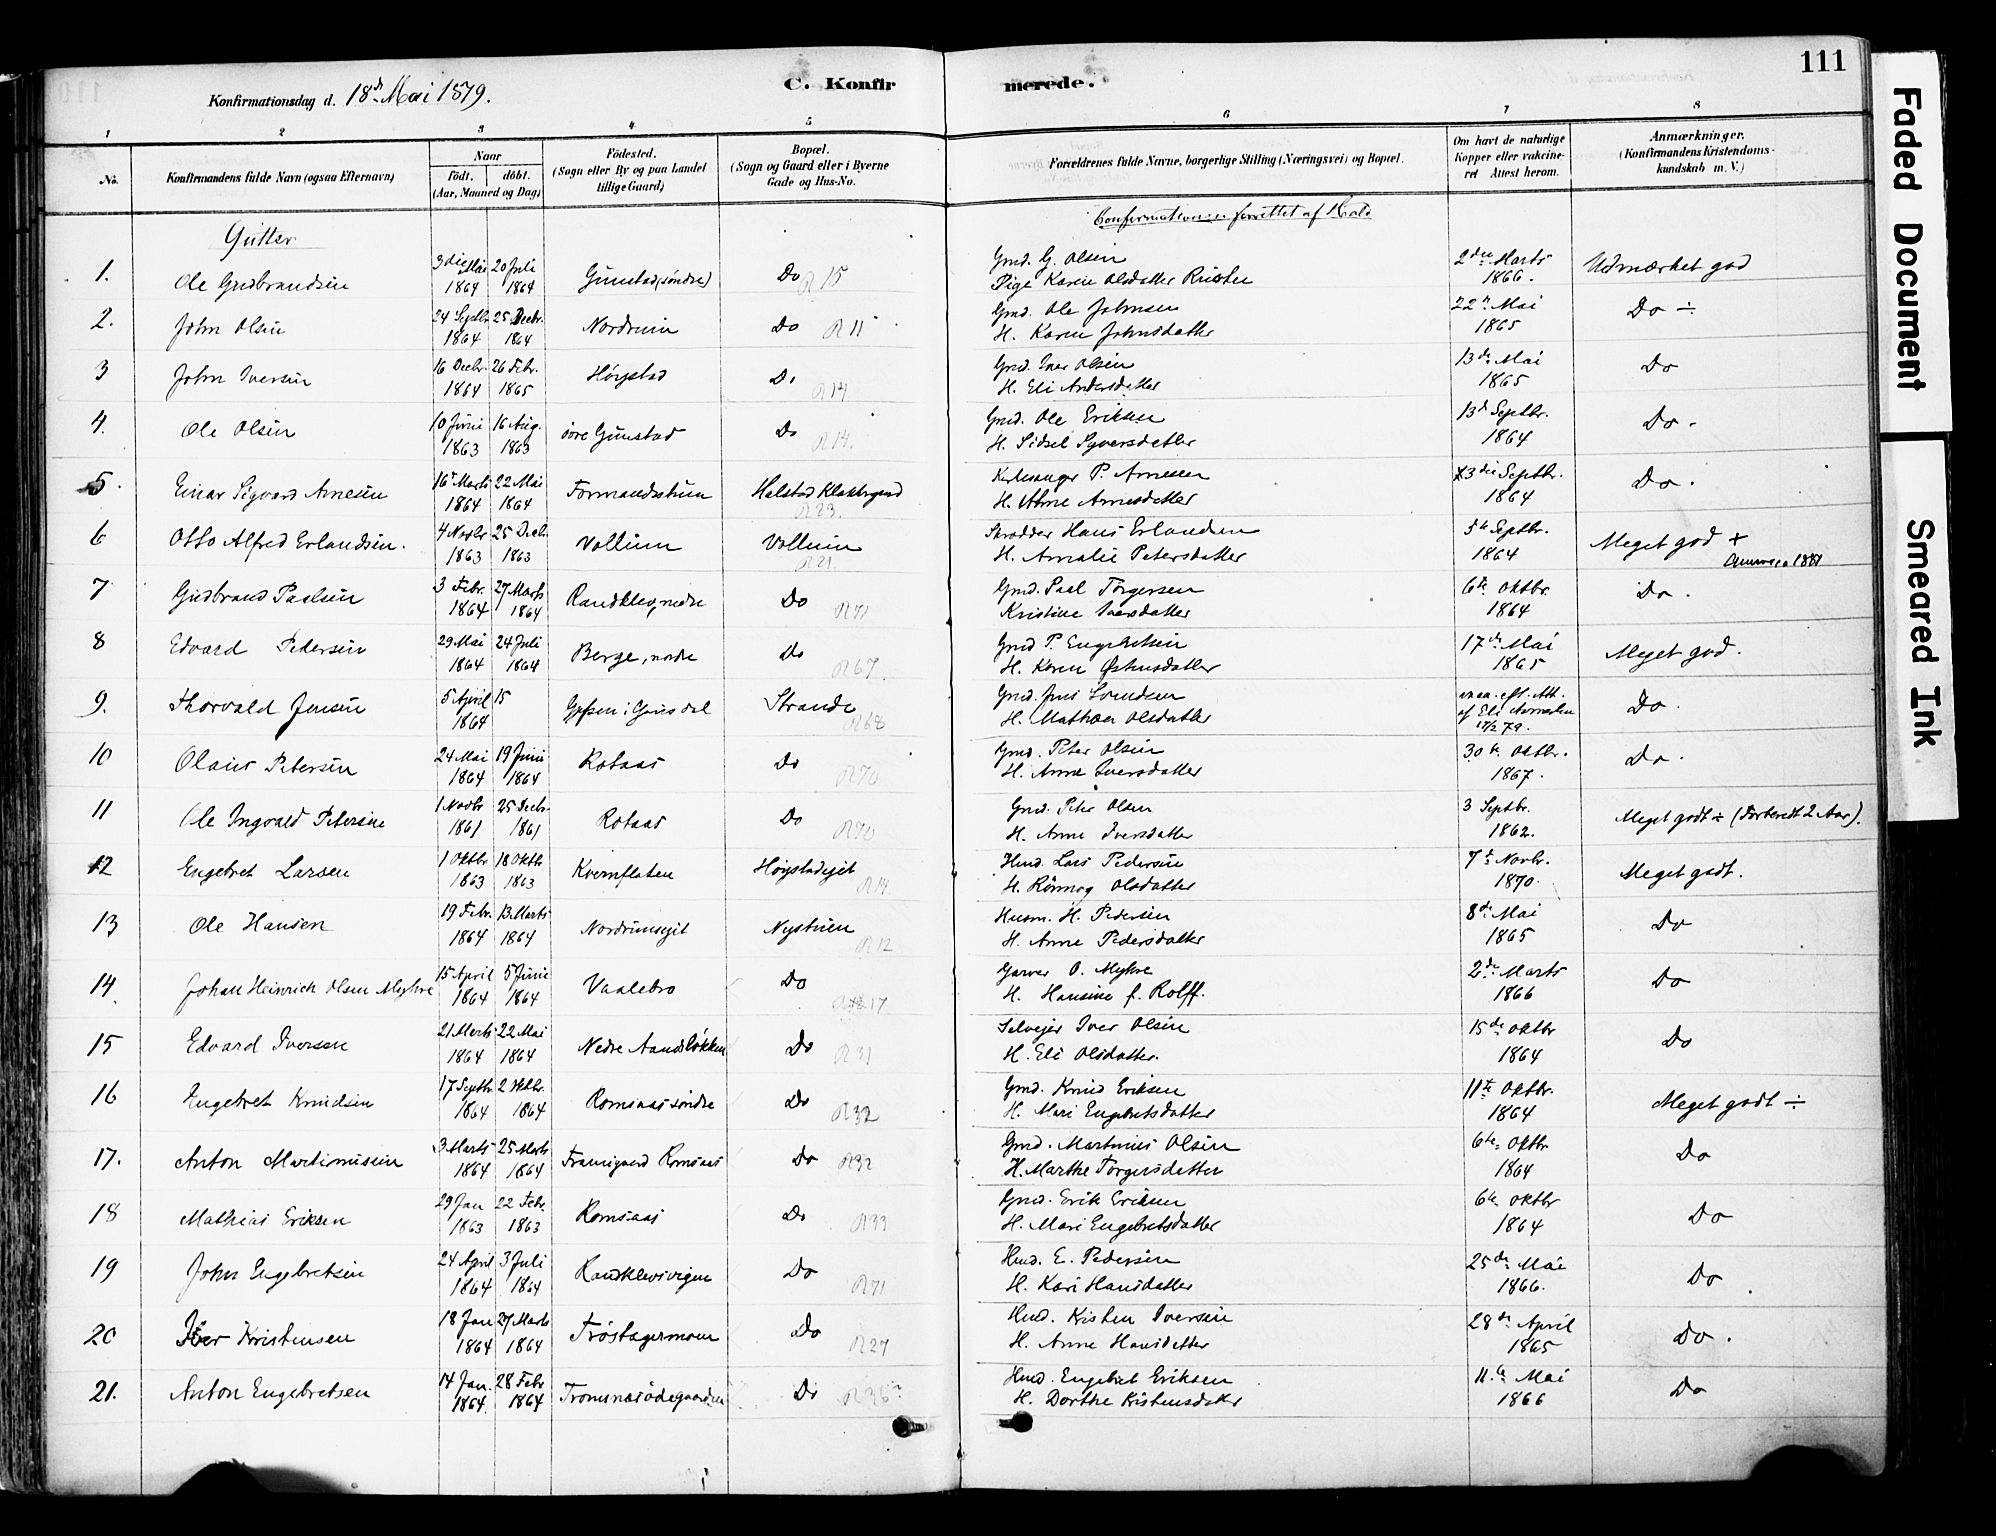 111
Konfirmationsdag d. 18de Mai 1879.
C. Konfirmerede.
1 2 3 4 5 6 7 8
No.
Konfirmandens fulde Navn (ogsaa Efternavn)
Naar
født. døbt.
(Aar, Maaned og Dag)
Födested.
(Sogn eller By og paa Landet
tillige Gaard)
Bopæl.
(Sogn og Gaard eller i Byerne
Gade og Hus-No.
Forældrenes fulde Navne, borgerlige Stilling (Næringsvei) og Bopæl.
Om havt de naturlige
Kopper eller vakcine-
ret Attest herom.
Anmærkninger.
(Konfirmandens Kristendoms-
kundskab m. V.)
Gutter
forrettet af
1. Ole Gudbrandsen 3die Mai 1864 20 Juli 1864 Gunstad (søndre) Do R15 Gmd. G. Olsen
Pige Karen Olsdatter 2den Marts 1866. Udmærket god
2. John Olsen 24 Septbr 1864 25 Decbr. 1864 Nordrum Do R11 Gmd. Ole Johnsen
H. Karen Johnsdatter 22n Mai 1865 Do ÷
3 John Iversen 16 Decbr. 1864 26 Febr. 1865 Høystad Do R14 Gmd. Iver Olsen
H. Eli Andersdatter 13de Mai 1865 Do
4. Ole Olsen 10 Juni 1863 16 Aug. 1863 øvre Gunstad Do R14. Gmd. Ole Eriksen
H. Sidsel Syversdatter 13d Septbr. 1864 Do -
5 Einar Sigvard Arnesen 16de Marts 1864 22 Mai 1864 Formandsstuen Halstad R23. Kirkesanger P. Arnesen
H. Anne Arnesdatter 3die Septbr. 1864 Do.
6 Otto Alfred Erlandsen. 4 Novbr 1863 25 Decbr. 1863 Vollum Vollum R21 Skrædder Hans Erlandsen
H. Amalie Petersdatter 5te Septbr. 1864 Meget god +
1881
7 Gudbrand Paulsen 3 Febr. 1864 27 Marts 1864 Randklev, nedre Do R71 Gmd. Paul Torgersen
Kristine Iversdatter 6te Oktbr. 1864 Do.
8 Edvard Pedersen 29 Mai 1864 24 Juli 1864 Berge, nordre Do R67. Gmd P. Engebretsen
H. Karen Østensdatter 17de Mai 1865 Meget god.
9. Thorvald Jensen 5 April 1864 15 i Gausdal Strande R68 Gmd. Jens Svendsen
H. Mathea Olsdatter vacc. eft. Att.
af Eli
79. Do.
10 Olaus Petersen 24 Mai 1864 19 Juni 1864 Rotaas Do R70 Gmd. Peter Olsen
H. Anne Iversdatter 30te Oktbr. 1867. Do.
11 Ole Ingvald Petersen 1 Novbr 1861 25 Decbr. 1861 Rotaas Do R70 Gmd. Peter Olsen
H. Anne Iversdatter 3 Septbr. 1862. Meget godt ÷ (Forberedt 2 Aar).
12 Engebret Larsen 1 Oktbr 1863 18 Oktbr 1863 Kvernflaten Høystadejet R14 Hmd. Lars Pedersen
H. Rönnog Olsdatter 7de Novbr. 1870. Meget godt.
13 Ole Hansen 19 Febr. 1864 13 Marts 1864 Nordrumsejet Nystuen R12 Husm. H. Pedersen
H. Anne Pedersdatter 8de Mai 1865 Do
14. Johan Heinrich Olsen Myhre 15 April 1864 5 Juni 1864 Vaalebro Do 17 Garver O. Myhre
H. Hansine f. Rolff. 2de Marts 1866 Do
15 Edvard Iversen 21 Marts 1864 22 Mai 1864 Nedre Aandsløkken Do R31 Selvejer Iver Olsen
H. Eli Olsdatter. 15de Oktbr 1864 Do
16 Engebret Knudsen 17 Septbr. 1864 2 Oktbr. 1864 Romsaas søndre Do R32 Gmd. Knud Eriksen
H. Mari Engebretsdatter 11te Oktbr. 1864 Meget godt ÷
17. Anton Martinusen 3 Marts 1864 25 Marts 1864 Framigard Romsaas Do R32 Gmd. Martinus Olsen
H. Marthe Torgersdatter 6te Oktbr 1864 Do
18 Mathias Eriksen 29 Jan 1863 22 Febr. 1863 Romsaas Do R33 Gmd. Erik Eriksen
H. Mari Engebretsdatter 6te Oktbr 1864 Do
19 John Engebretsen 24 April 1864 3 Juli 1864 Randklevsvigen Do R71 Hmd. E. Pedersen
H. Kari Hansdatter 25de Mai 1866. Do
20 Iver Kristensen 18 Jan 1864 27 Marts 1864 Trøstagermoen Do R27 Hmd. Kristen Iversen
H. Anne Hansdatter 28de April 1865 Do.
21. Anton Engebretsen 14 Jan. 1864. 28 Febr 1864 Tromsnæsødegaarden Do R36 Hmd. Engebret Eriksen
H. Dorthe Kristensdatter 11te Mai 1866 Do
Faded Document
Smeared Ink